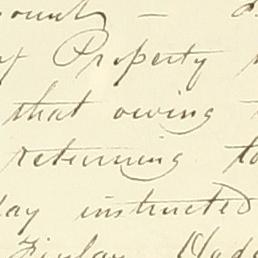 ount —
of Property
that owing
returning to
day instructed
Finlay